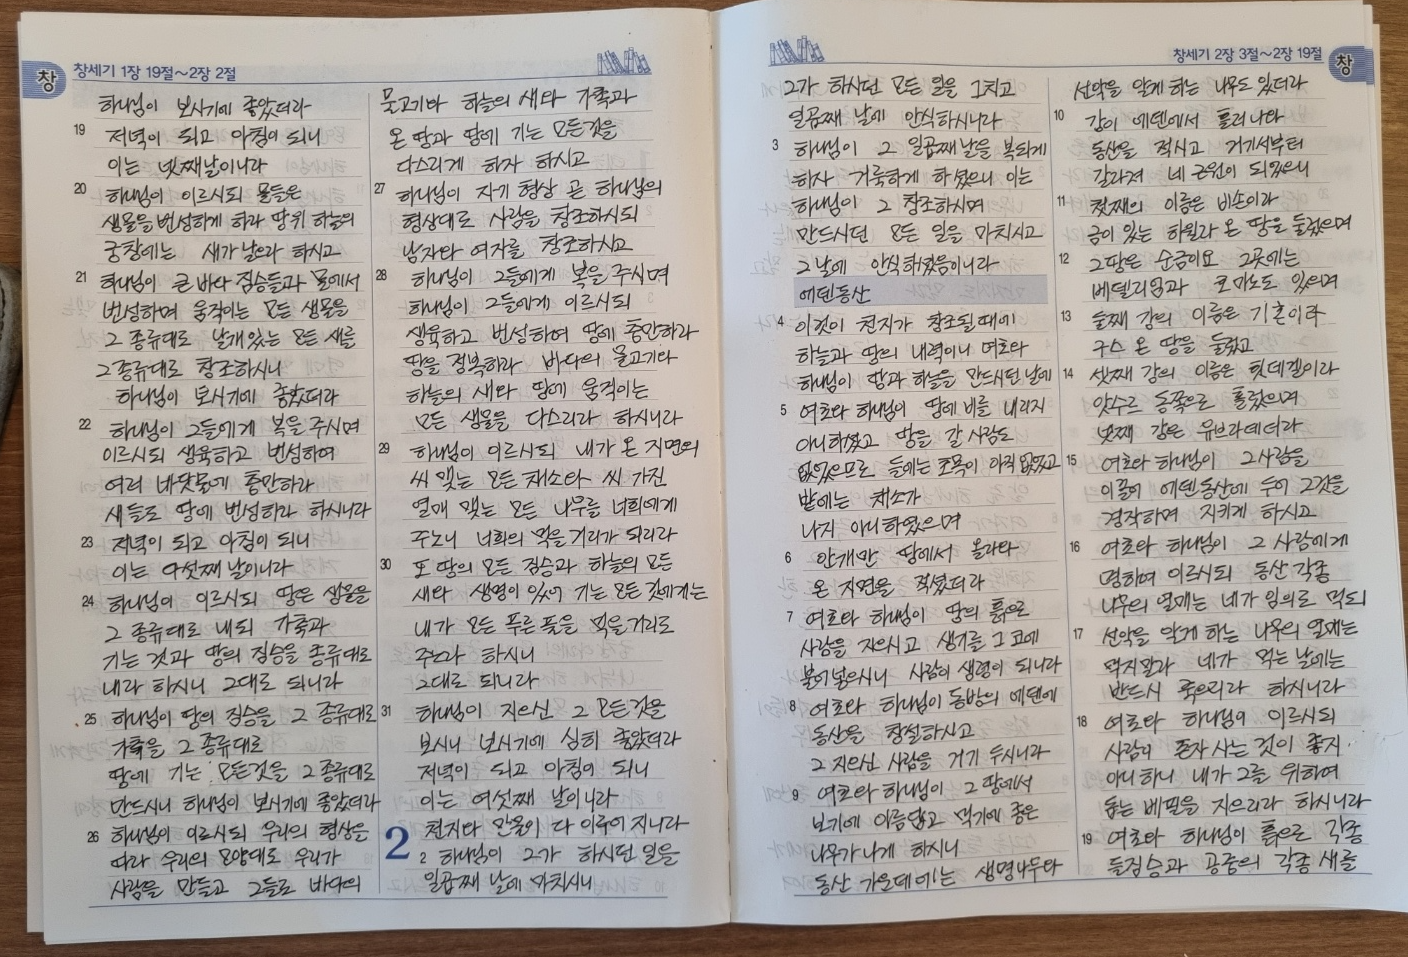 창
창세기 1장 19절~2장 2절
하나님이 보시기에 좋았더라
19 저녁이 되고 아침이 되니
이는 넷째날이니라
20 하나님이 이르시되 물들은
생물을 번성하게 하라 땅위 하늘의
궁창에는 새가 날으라 하시고
21 하나님이 큰 바다 짐승들과 물에서
번성하며 움직이는 모든 생물을
그 종류대로 날개있는 모든 새를
그 종류대로 창조하시니
하나님이 보시기에 좋았더라
22 하나님이 그들에게 복을 주시며
이르시되 생육하고 번성하여
여러 바닷물에 충만하라
새들도 땅에 번성하라 하시니라
23 저녁이 되고 아침이 되니
이는 다섯째 날이니라
24 하나님이 이르시되 땅은 생물을
그 종류대로 내되 가축과
기는 것과 땅의 짐승을 종류대로
내라 하시니 그대로 되니라
25 하나님이 땅의 짐승을 그 종류대로
가축을 그 종류대로
땅에 기는 모든것을 그 종류대로
만드시니 하나님이 보시기에 좋았더라
26 하나님이 이르시되 우리의 형상을
따라 우리의 모양대로 우리가
사람을 만들고 그들로 바다의
물고기와 하늘의 새와 가축과
온 땅과 땅에 기는 모든것을
다스리게 하자 하시고
27 하나님이 자기 형상 곧 하나님의
형상대로 사람을 창조하시되
남자와 여자를 창조하시고
28 하나님이 그들에게 복을 주시며
하나님이 그들에게 이르시되
생육하고 번성하여 땅에 충만하라
땅을 정복하라 바다의 물고기와
하늘의 새와 땅에 움직이는
모든 생물을 다스리라 하시니라
29 하나님이 이르시되 내가 온 지면의
씨 맺는 모든 채소와 씨 가진
열매 맺는 모든 나무를 너희에게
주노니 너희의 먹을거리가 되리라
30 또 땅의 모든 짐승과 하늘의 모든
새와 생명이 있어 기는 모든 것에게는
내가 모든 푸른 풀을 먹을거리로
주노라 하시니
그대로 되니라
31 하나님이 지으신 그 모든것을
보시니 보시기에 심히 좋았더라
저녁이 되고 아침이 되니
이는 여섯째 날이니라
2 천지와 만물이 다 이루어지니라
2 하나님이 그가 하시던 일을
일곱째 날에 마치시니
창세기 2장 3절~2장 19절
창
그가 하시던 모든 일을 그치고
일곱째 날에 안식하시니라
3 하나님이 그 일곱째날을 복되게
하사 거룩하게 하셨으니 이는
하나님이 그 창조하시며
만드시던 모든 일을 마치시고
그날에 안식하셨음이니라
에덴동산
4 이것이 천지가 창조될 때에
하늘과 땅의 내력이니 여호와
하나님이 땅과 하늘을 만드시던 날에
5 여호와 하나님이 땅에 비를 내리지
아니하셨고 땅을 갈 사람도
없었으므로 들에는 초목이 아직 없었고
밭에는 채소가
나지 아니하였으며
6 안개만 땅에서 올라와
온 지면을 적셨더라
7 여호와 하나님이 땅의 흙으로
사람을 지으시고 생기를 그 코에
불어넣으시니 사람이 생령이 되니라
8 여호와 하나님이 동방의 에덴에
동산을 창설하시고
그 지으신 사람을 거기 두시니라
9 여호와 하나님이 그 땅에서
보기에 아름답고 먹기에 좋은
나무가 나게 하시니
동산 가운데에는 생명나무와
선악을 알게 하는 나무도 있더라
10 강이 에덴에서 흘러나와
동산을 적시고 거기서부터
갈라져 네 근원이 되었으니
11 첫째의 이름은 비손이라
금이 있는 하윌라 온 땅을 둘렀으며
12 그땅은 순금이요 그곳에는
베델리엄과 호마노도 있으며
13 둘째 강의 이름은 기혼이라
구스 온 땅을 둘렀고
14 셋째 강의 이름은 힛데겔이라
앗수르 동쪽으로 흘렀으며
넷째 강은 유브라데더라
15 여호와 하나님이 그 사람을
이끌어 에덴동산에 두어 그것을
경작하며 지키게 하시고
16 여호와 하나님이 그 사람에게
명하여 이르시되 동산 각종
나무의 열매는 네가 임의로 먹되
17 선악을 알게 하는 나무의 열매는
먹지말라 네가 먹는 날에는
반드시 죽으리라 하시니라
18 여호와 하나님이 이르시되
사람이 혼자 사는 것이 좋지
아니하니 내가 그를 위하여
돕는 배필을 지으리라 하시니라
19 여호와 하나님이 흙으로 각종
들짐승과 공중의 각종 새를